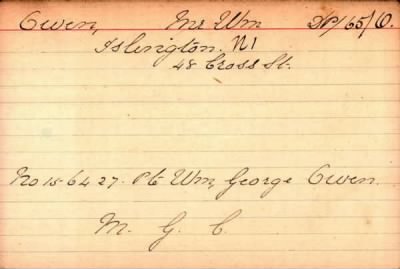 Owen, Mr Wm DP/65/O.
Islington. N1
48 Cross St.
No 156427. Pte Wm, George Owen.
M. G. C.